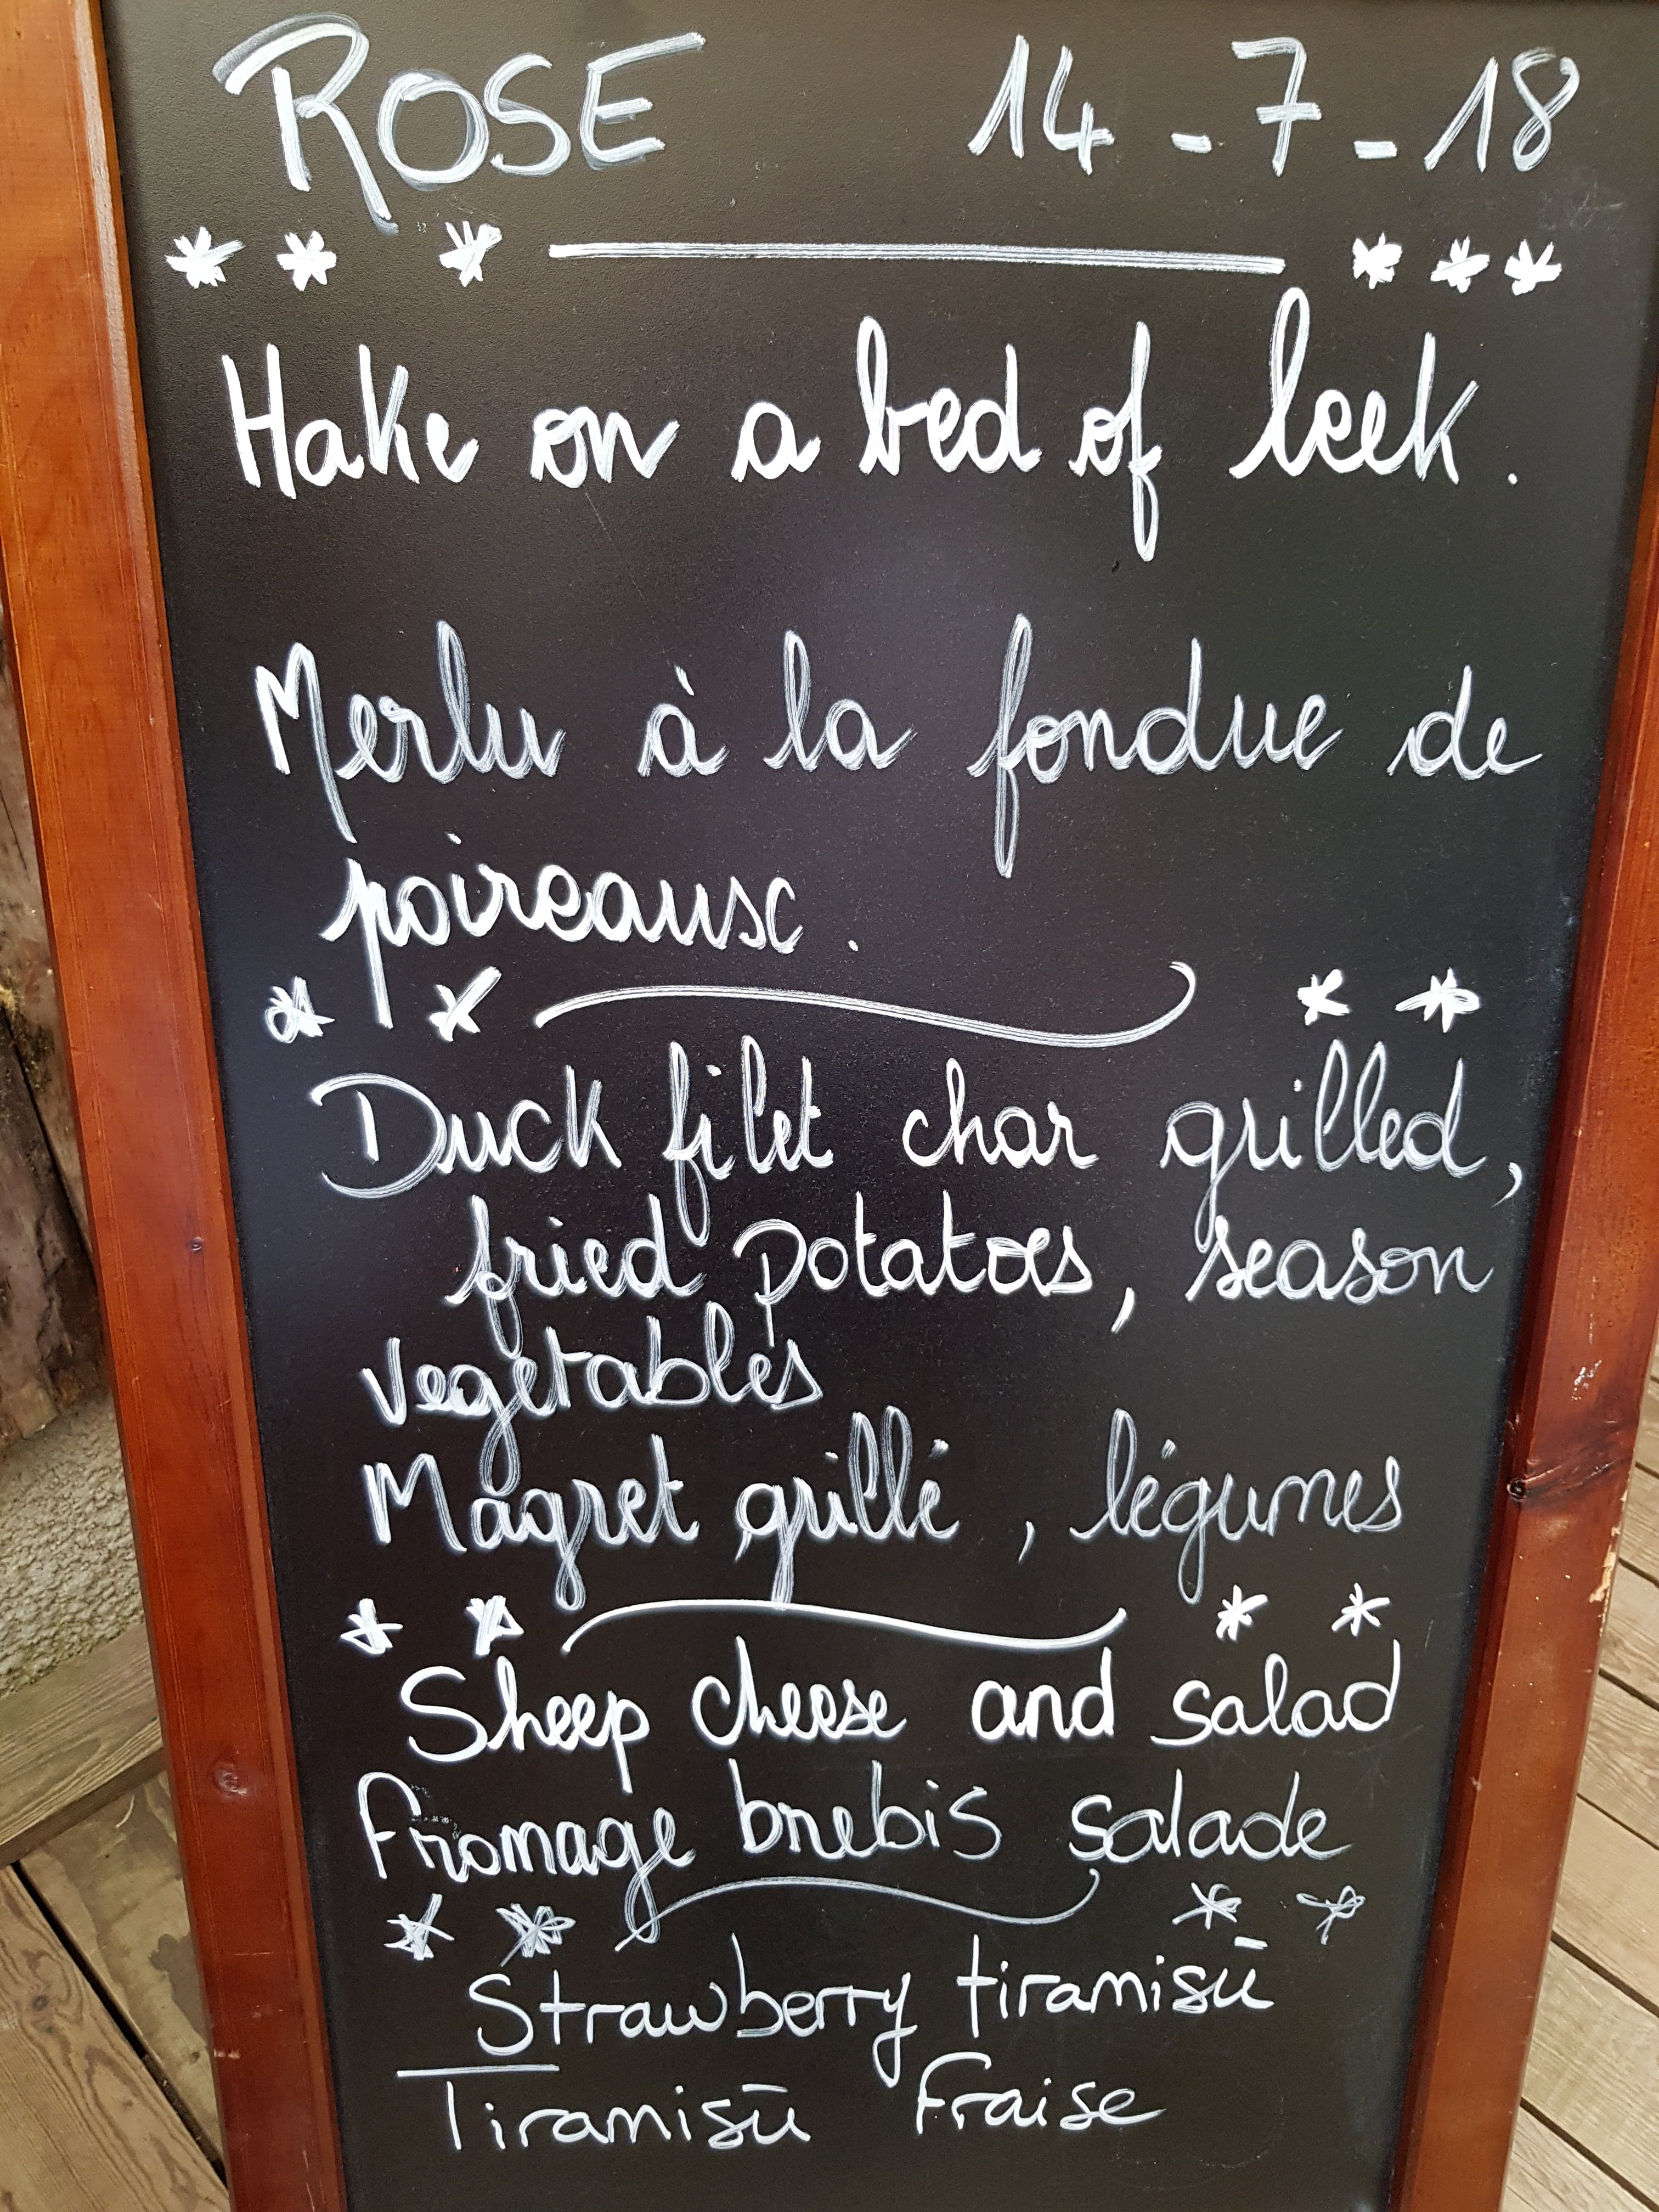 ROSE 14-7-18
*** ***
Hake on a bed of leek.
Merlu à la fondue de
poireaux.
** **
Duck filet char grilled,
fried potatoes, season
vegetables
Magret grillé, légumes
** **
Sheep cheese and salad
Fromage brebis salade
** **
Strawberry tiramisū
Tiramisū Fraise